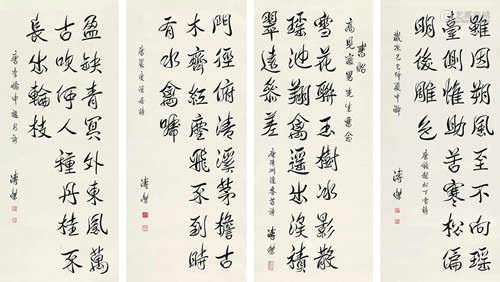 雖因朔風至不向瑶
臺側惟助苦寒松偏
明後雕色
唐錢起松下雪詩
歲次己巳仲夏中浣 溥傑
書贈
高見澤 先生惠念
雪花聯玉樹冰影散
瑶池翔禽遥出沒積
翠遠參差
春首詩 溥傑
門徑俯清溪茅檐古
木齊紅塵飛不到時
有水禽啼
唐裴度溪居詩 溥傑
盈缺青冥外東風萬
古吹何人種丹桂不
長出輪枝
唐李嶠中秋月詩 溥傑